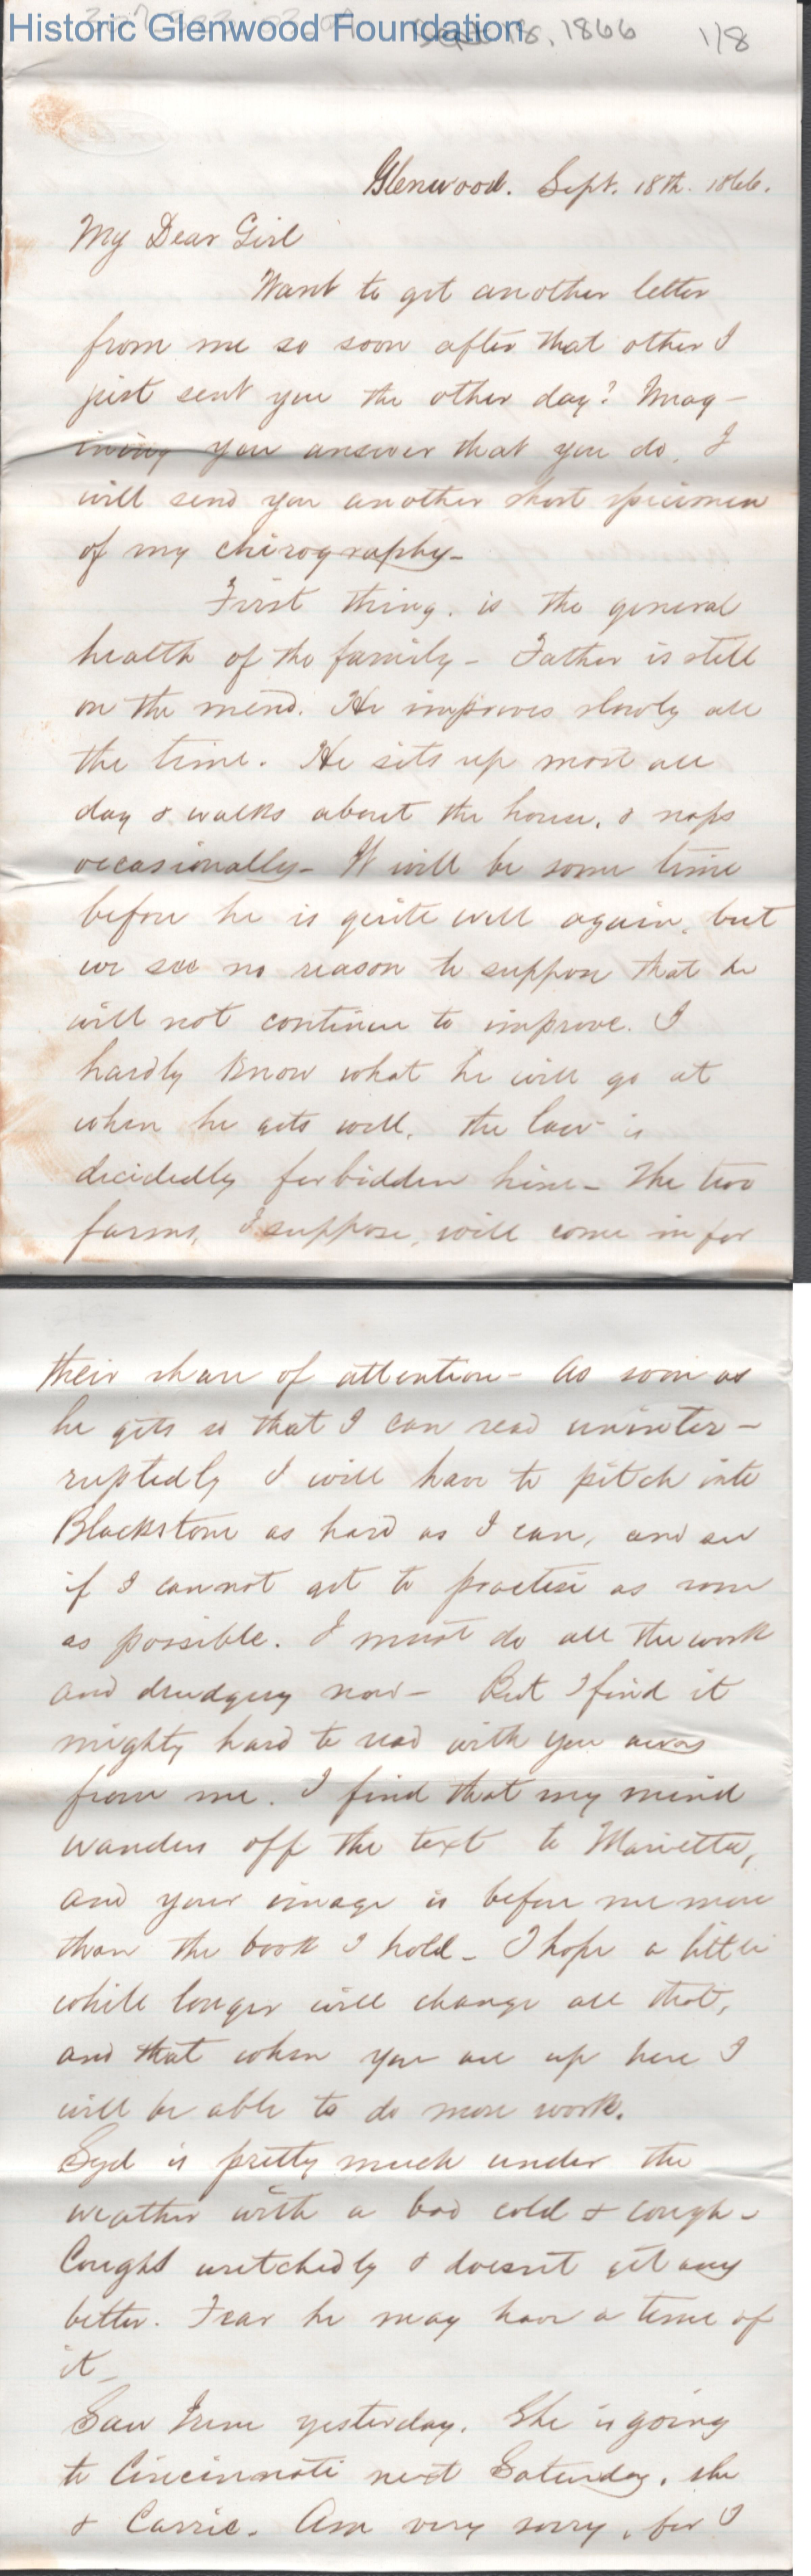 Historic Glenwood Foundation
18, 1866 1/8
Glenwood. Sept. 18th. 1866.
My Dear Girl
Want to get another letter
from me so soon after that other I
just sent you the other day? Imag-
ining you answer that you do, I
will send you another short specimen
of my chirography-
First thing. is the general
health of the family - Father is still
on the mend. He improves slowly all
the time. He sits up most all
day & walks about the house, & naps
occasionally - It will be some time
before he is quite well again, but
we see no reason to suppose that he
will not continue to improve. I
hardly know what he will go at
when he gets well. the law is
decidedly forbidden him - The two
farms, I suppose, will come in for
their share of attention - As soon as
he gets so that I can read uninter-
ruptedly I will have to pitch into
Blackstone as hard as I can, and see
if I cannot get to practise as soon
as possible. I must do all the work
and drudgery now - But I find it
mighty hard to read with you away
from me. I find that my mind
wanders off the text to Marietta,
and your image is before me more
than the book I hold - I hope a little
while longer will change all that,
and that when you are up here I
will be able to do more work.
Syd is pretty much under the
weather with a bad cold & cough -
Coughs wretchedly & doesn't get any
better. Fear he may have a time of
it -
Saw Irene yesterday. She is going
to Cincinnati next Saturday, she
& Carrie. Am very sorry, for I